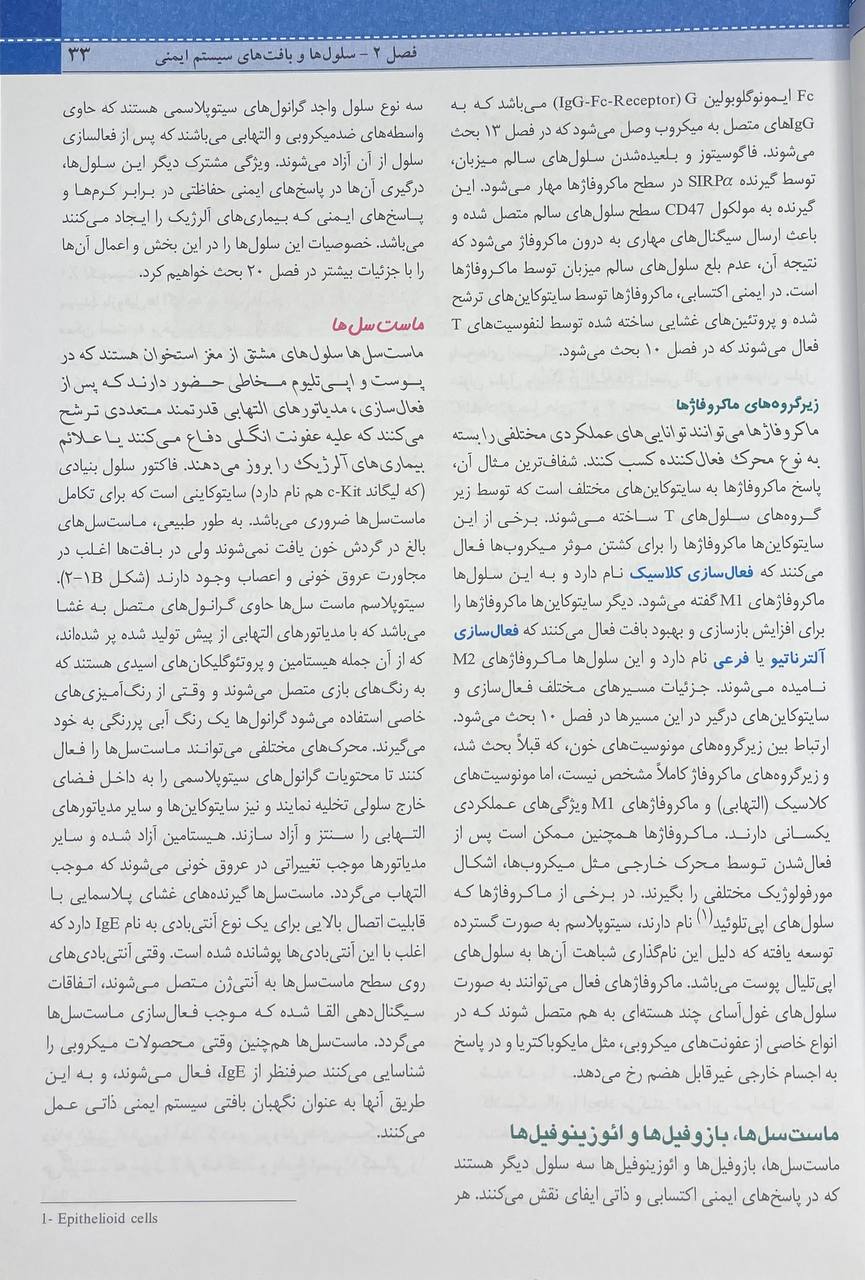 فصل ۲ – سلول‌ها و بافت‌های سیستم ایمنی ۳۳
Fc ایمونوگلوبولین G (IgG-Fc-Receptor) می‌باشد که به
IgGهای متصل به میکروب وصل می‌شود که در فصل ۱۳ بحث
می‌شوند. فاگوسیتوز و بلعیده‌شدن سلول‌های سالم میزبان،
توسط گیرنده SIRPα در سطح ماکروفاژها مهار می‌شود. این
گیرنده به مولکول CD47 سطح سلول‌های سالم متصل شده و
باعث ارسال سیگنال‌های مهاری به درون ماکروفاژ می‌شود که
نتیجه آن، عدم بلع سلول‌های سالم میزبان توسط ماکروفاژها
است. در ایمنی اکتسابی، ماکروفاژها توسط سایتوکاین‌های ترشح
شده و پروتئین‌های غشایی ساخته شده توسط لنفوسیت‌های T
فعال می‌شوند که در فصل ۱۰ بحث می‌شود.
زیرگروه‌های ماکروفاژها
ماکروفاژها می‌توانند توانایی‌های عملکردی مختلفی را بسته
به نوع محرک فعال‌کننده کسب کنند. شفاف‌ترین مثال آن،
پاسخ ماکروفاژها به سایتوکاین‌های مختلف است که توسط زیر
گروه‌های سلول‌های T ساخته می‌شوند. برخی از این
سایتوکاین‌ها ماکروفاژها را برای کشتن موثر میکروب‌ها فعال
می‌کنند که فعال‌سازی کلاسیک نام دارد و به این سلول‌ها
ماکروفاژهای M1 گفته می‌شود. دیگر سایتوکاین‌ها ماکروفاژها را
برای افزایش بازسازی و بهبود بافت فعال می‌کنند که فعال‌سازی
آلترناتیو یا فرعی نام دارد و این سلول‌ها ماکروفاژهای M2
نامیده می‌شوند. جزئیات مسیرهای مختلف فعال‌سازی و
سایتوکاین‌های درگیر در این مسیرها در فصل ۱۰ بحث می‌شود.
ارتباط بین زیرگروه‌های مونوسیت‌های خون، که قبلاً بحث شد،
و زیرگروه‌های ماکروفاژ کاملاً مشخص نیست، اما مونوسیت‌های
کلاسیک (التهابی) و ماکروفاژهای M1 ویژگی‌های عملکردی
یکسانی دارند. ماکروفاژها همچنین ممکن است پس از
فعال‌شدن توسط محرک خارجی مثل میکروب‌ها، اشکال
مورفولوژیک مختلفی را بگیرند. در برخی از ماکروفاژها که
سلول‌های اپی‌تلوئید(۱) نام دارند، سیتوپلاسم به صورت گسترده
توسعه یافته که دلیل این نام‌گذاری شباهت آن‌ها به سلول‌های
اپی‌تلیال پوست می‌باشد. ماکروفاژهای فعال می‌توانند به صورت
سلول‌های غول‌آسای چند هسته‌ای به هم متصل شوند که در
انواع خاصی از عفونت‌های میکروبی، مثل مایکوباکتریا و در پاسخ
به اجسام خارجی غیرقابل هضم رخ می‌دهد.
ماست‌سل‌ها، بازوفیل‌ها و ائوزینوفیل‌ها
ماست‌سل‌ها، بازوفیل‌ها و ائوزینوفیل‌ها سه سلول دیگر هستند
که در پاسخ‌های ایمنی اکتسابی و ذاتی ایفای نقش می‌کنند. هر
سه نوع سلول واجد گرانول‌های سیتوپلاسمی هستند که حاوی
واسطه‌های ضدمیکروبی و التهابی می‌باشند که پس از فعالسازی
سلول از آن آزاد می‌شوند. ویژگی مشترک دیگر این سلول‌ها،
درگیری آن‌ها در پاسخ‌های ایمنی حفاظتی در برابر کرم‌ها و
پاسخ‌های ایمنی که بیماری‌های آلرژیک را ایجاد می‌کنند
می‌باشد. خصوصیات این سلول‌ها را در این بخش و اعمال آن‌ها
را با جزئیات بیشتر در فصل ۲۰ بحث خواهیم کرد.
ماست‌سل‌ها
ماست‌سل‌ها سلول‌های مشتق از مغز استخوان هستند که در
پوست و اپی‌تلیوم مخاطی حضور دارند که پس از
فعال‌سازی، مدیاتورهای التهابی قدرتمند متعددی ترشح
می‌کنند که علیه عفونت انگلی دفاع می‌کنند یا علائم
بیماری‌های آلرژیک را بروز می‌دهند. فاکتور سلول بنیادی
(که لیگاند c-Kit هم نام دارد) سایتوکاینی است که برای تکامل
ماست‌سل‌ها ضروری می‌باشد. به طور طبیعی، ماست‌سل‌های
بالغ در گردش خون یافت نمی‌شوند ولی در بافت‌ها اغلب در
مجاورت عروق خونی و اعصاب وجود دارند (شکل ۲-۱B).
سیتوپلاسم ماست سل‌ها حاوی گرانول‌های متصل به غشا
می‌باشد که با مدیاتورهای التهابی از پیش تولید شده پر شده‌اند،
که از آن جمله هیستامین و پروتئوگلیکان‌های اسیدی هستند که
به رنگ‌های بازی متصل می‌شوند و وقتی از رنگ‌آمیزی‌های
خاصی استفاده می‌شود گرانول‌ها یک رنگ آبی پررنگی به خود
می‌گیرند. محرک‌های مختلفی می‌توانند ماست‌سل‌ها را فعال
کنند تا محتویات گرانول‌های سیتوپلاسمی را به داخل فضای
خارج سلولی تخلیه نمایند و نیز سایتوکاین‌ها و سایر مدیاتورهای
التهابی را سنتز و آزاد سازند. هیستامین آزاد شده و سایر
مدیاتورها موجب تغییراتی در عروق خونی می‌شوند که موجب
التهاب می‌گردد. ماست‌سل‌ها گیرنده‌های غشای پلاسمایی با
قابلیت اتصال بالایی برای یک نوع آنتی‌بادی به نام IgE دارد که
اغلب با این آنتی‌بادی‌ها پوشانده شده است. وقتی آنتی‌بادی‌های
روی سطح ماست‌سل‌ها به آنتی‌ژن متصل می‌شوند، اتفاقات
سیگنال‌دهی القا شده که موجب فعال‌سازی ماست‌سل‌ها
می‌گردد. ماست‌سل‌ها همچنین وقتی محصولات میکروبی را
شناسایی می‌کنند صرفنظر از IgE، فعال می‌شوند، و به این
طریق آنها به عنوان نگهبان بافتی سیستم ایمنی ذاتی عمل
می‌کنند.
1- Epithelioid cells